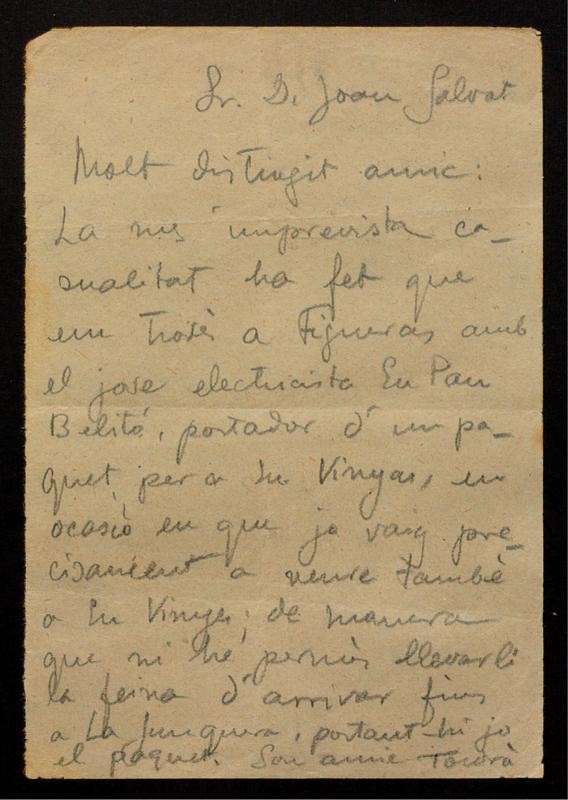 Sr. D. Joan Salvat
Molt distingit amic:
La mes imprevista ca-
sualitat ha fet que
em trobés a Figueras amb
el jove electricista En Pau
Belitó, portador d'un pa-
quet per a En Vinyas, en
ocasió en que jo vaig pre-
cisament a veure també
a En Vinyas; de manera
que m'he permès llevarli
la feina d'arrivar fins
a La Junquera, portant-hi jo
el paquet. Son amic